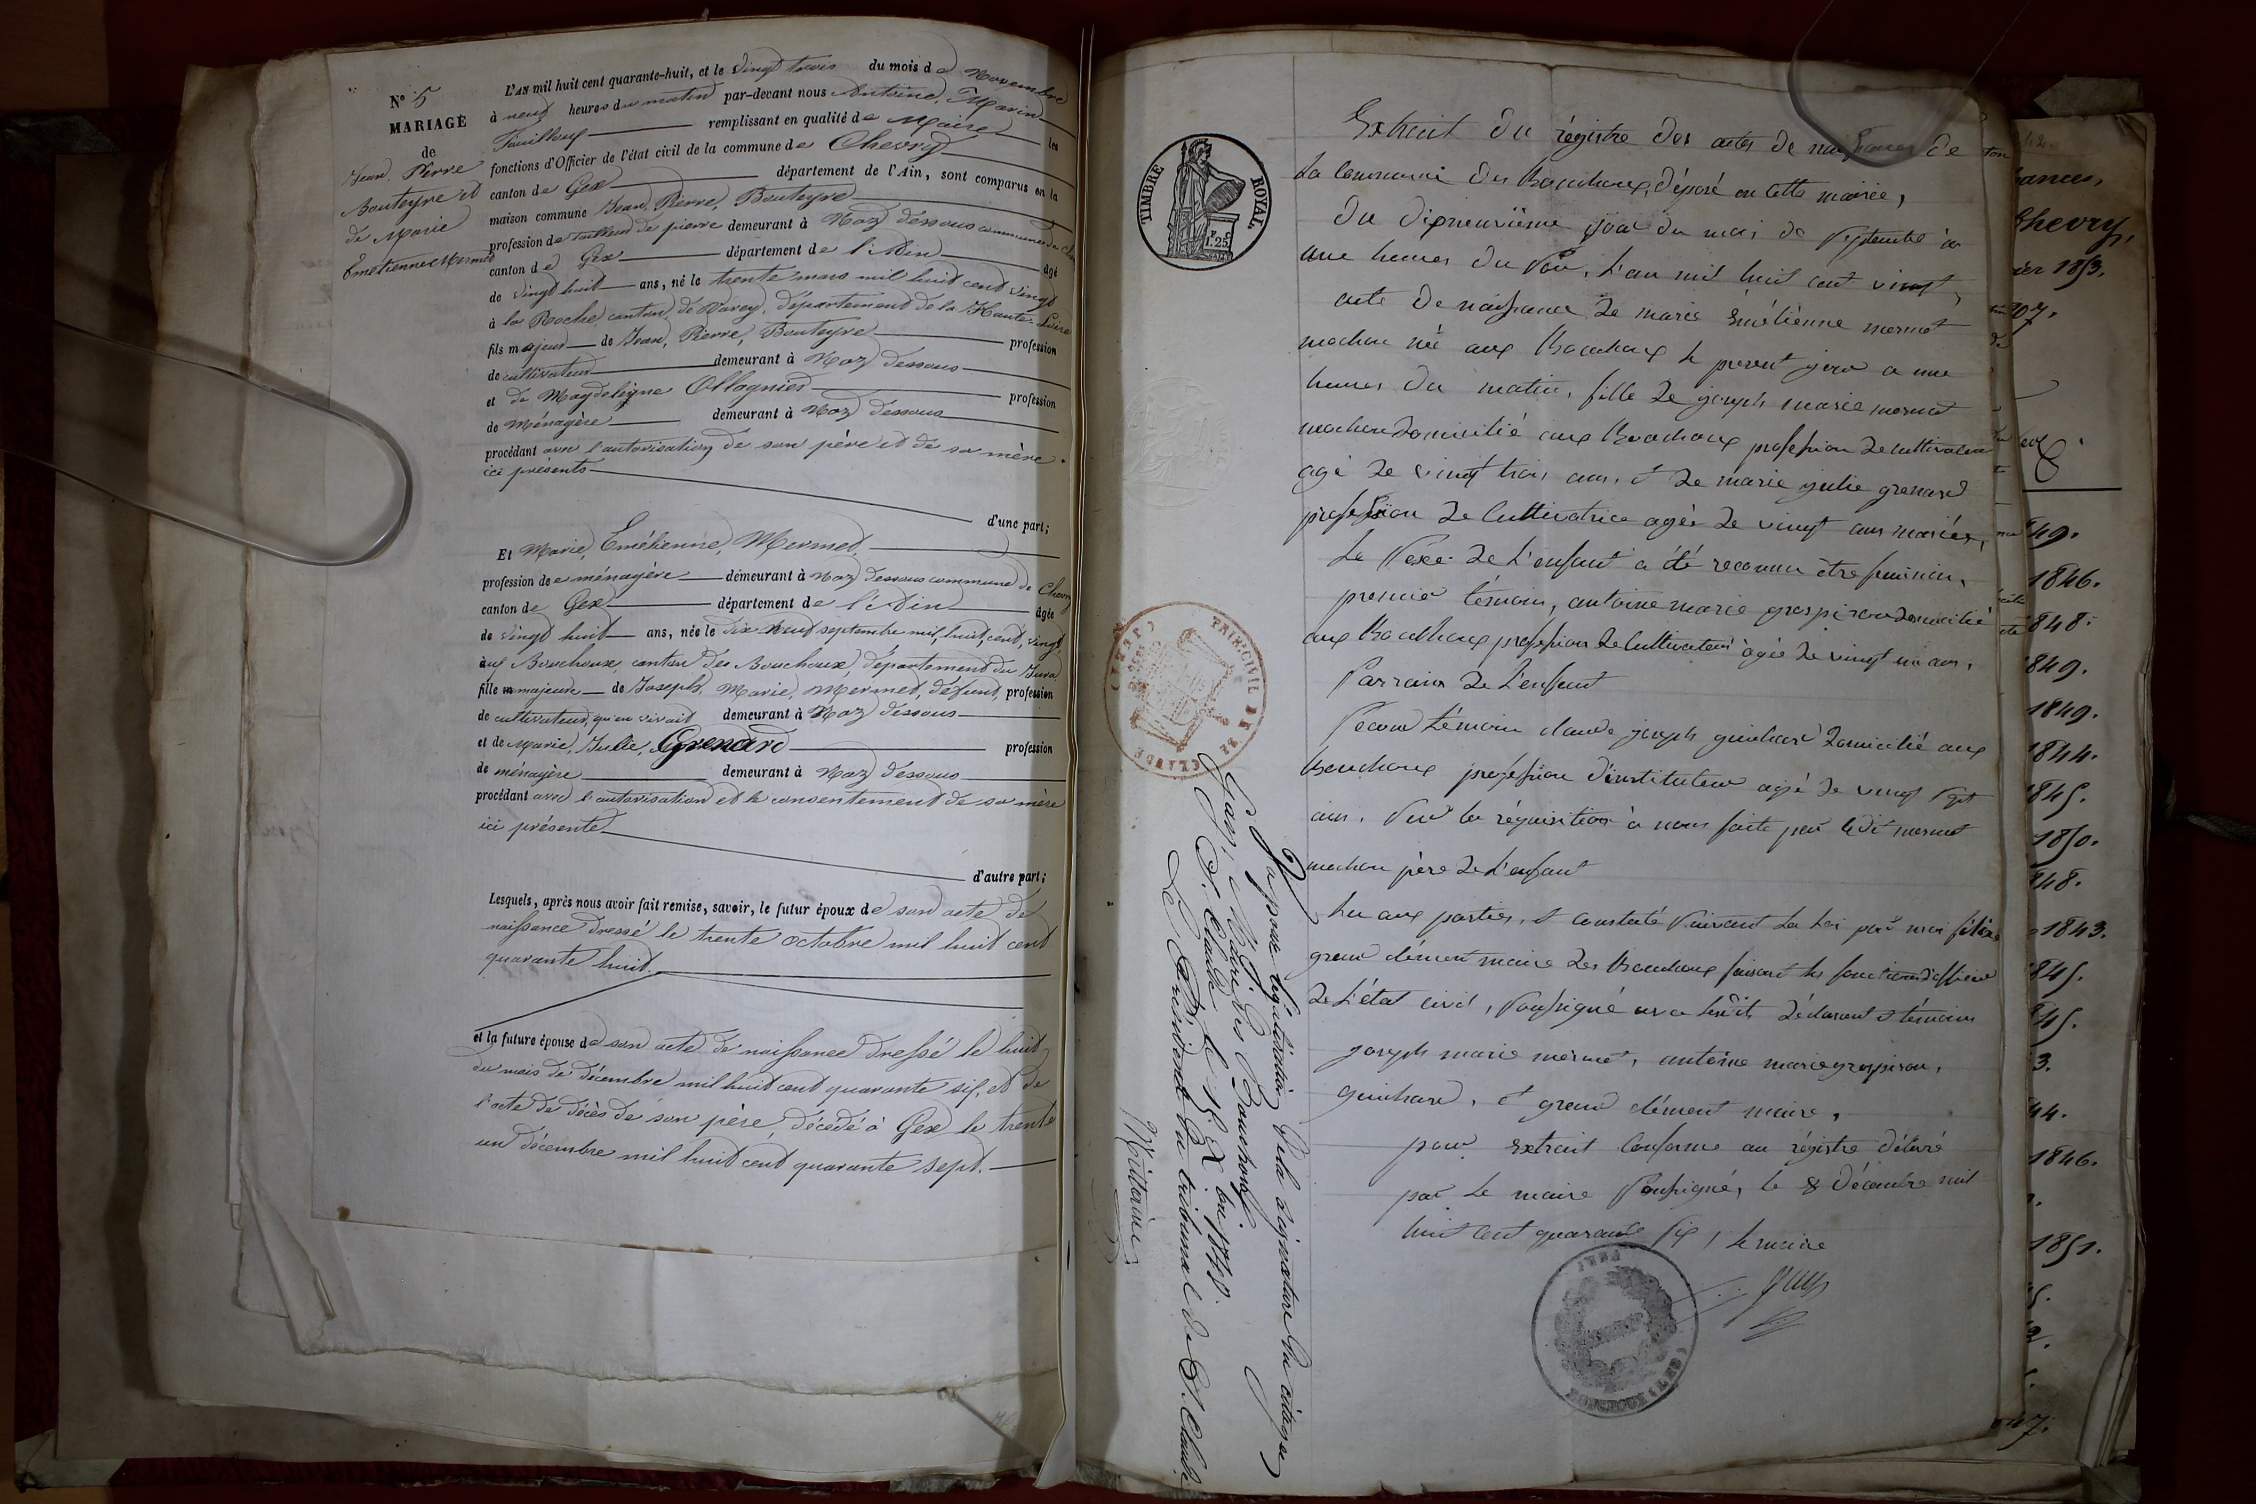 N° 5
MARIAGE
de
Jean, Pierre
Bouteyre et
de Marie
Emélienne Mermet
L'AN mil huit cent quarante-huit, et le vingt trois du mois de Novembre
à neuf heures du matin par-devant nous Antoine, Marin
Fouilloux remplissant en qualité de Maire les
fonctions d'Officier de l'état civil de la commune de Chevry
canton de Gex département de l'Ain, sont comparus en la
maison commune Jean, Pierre, Bouteyre
profession de tailleur de pierre demeurant à Naz dessous commune de
canton de Gex département de l'Ain âgé
de vingt huit ans, né le trente mars mil huit cent vingt
à la Roche, canton de Vorey, département de la Haute Loire
fils majeur de Jean, Pierre, Bouteyre profession
de cultivateur demeurant à Naz dessous
et de Magdeleine Ollagnier profession
de ménagère demeurant à Naz dessous
procédant avec l'autorisation de son père et de sa mère
ici présents
d'une part;
Et Marie, Emélienne, Mermet,
profession de ménagère demeurant à Naz dessous commune de Chevry
canton de Gex département de l'Ain âgée
de vingt huit ans, née le dix neuf septembre mil, huit, cent, vingt
aux Bouchoux, canton des Bouchoux, département du Jura
fille majeure de Joseph, Marie, Mermet, défunt, profession
de cultivateur, qu'en vivait demeurant à Naz dessous
et de Marie, Julie, Grenard profession
de ménagère demeurant à Naz dessous
procédant avec l'autorisation et le consentement de sa mère
ici présente
d'autre part;
Lesquels, après nous avoir fait remise, savoir, le futur époux de son acte de
naissance dressé le trente octobre mil huit cent
quarante huit.
et la future épouse de son acte de naissance dressé le huit
du mois de décembre mil huit cent quarante six, et de
l'acte de décès de son père, décédé à Gex le trente
un décembre mil huit cent quarante sept.
TIMBRE ROYAL
1.25
Extrait du régistre des actes de naissances de
la Commune des Bouchoux, déposé en cette mairie,
Du dixneuvième jour du mois de septembre à
une heures du soir, l'an mil huit cent vingt,
acte de naissance de marie Emélienne mermet
mochon né aux Bouchoux le present jour a une
heures du matin, fille de joseph marie mermet
mochon domicilié aux Bouchoux profession de cultivateur
agé de vingt trois ans, et de marie julie grenard
profession de Cultivatrice agée de vingt ans mariés,
Le sexe de L'enfant a été reconnu être feminin,
premier témoin, antoine marie grospiron domicilié
aux Bouchoux profession de Cultivateur agé de vingt un ans,
Parrain de L'enfant
second témoin claude joseph guichard domicilié aux
Bouchoux profession d'instituteur agé de vingt sept
ans. Sur la réquisition à nous faite par ledit mermet
mochon père de L'enfant
Lu aux parties, et constaté suivant La Loi par moi
clément maire des Bouchoux faisant les fonctions d'officier
de L'état civil, soussigné avec lesdits déclarant et témoins
joseph marie mermet, antoine marie grospiron,
guichard, et clément maire,
pour extrait Conforme au régistre délivré
par Le maire soussigné, le 8 Décembre mil
huit cent quarante six, le maire
Vu pour légalisation de la signature du citoyen
Maire des Bouchoux
St. Claude le 15 Xbre 1848.
Le Président du tribunal de St. Claude
JURA
Chevry,
1853.
207.
49.
1846.
848.
849.
1849.
1844.
1845.
1850.
848.
1843.
845.
45.
3.
44.
1846.
1851.
47.